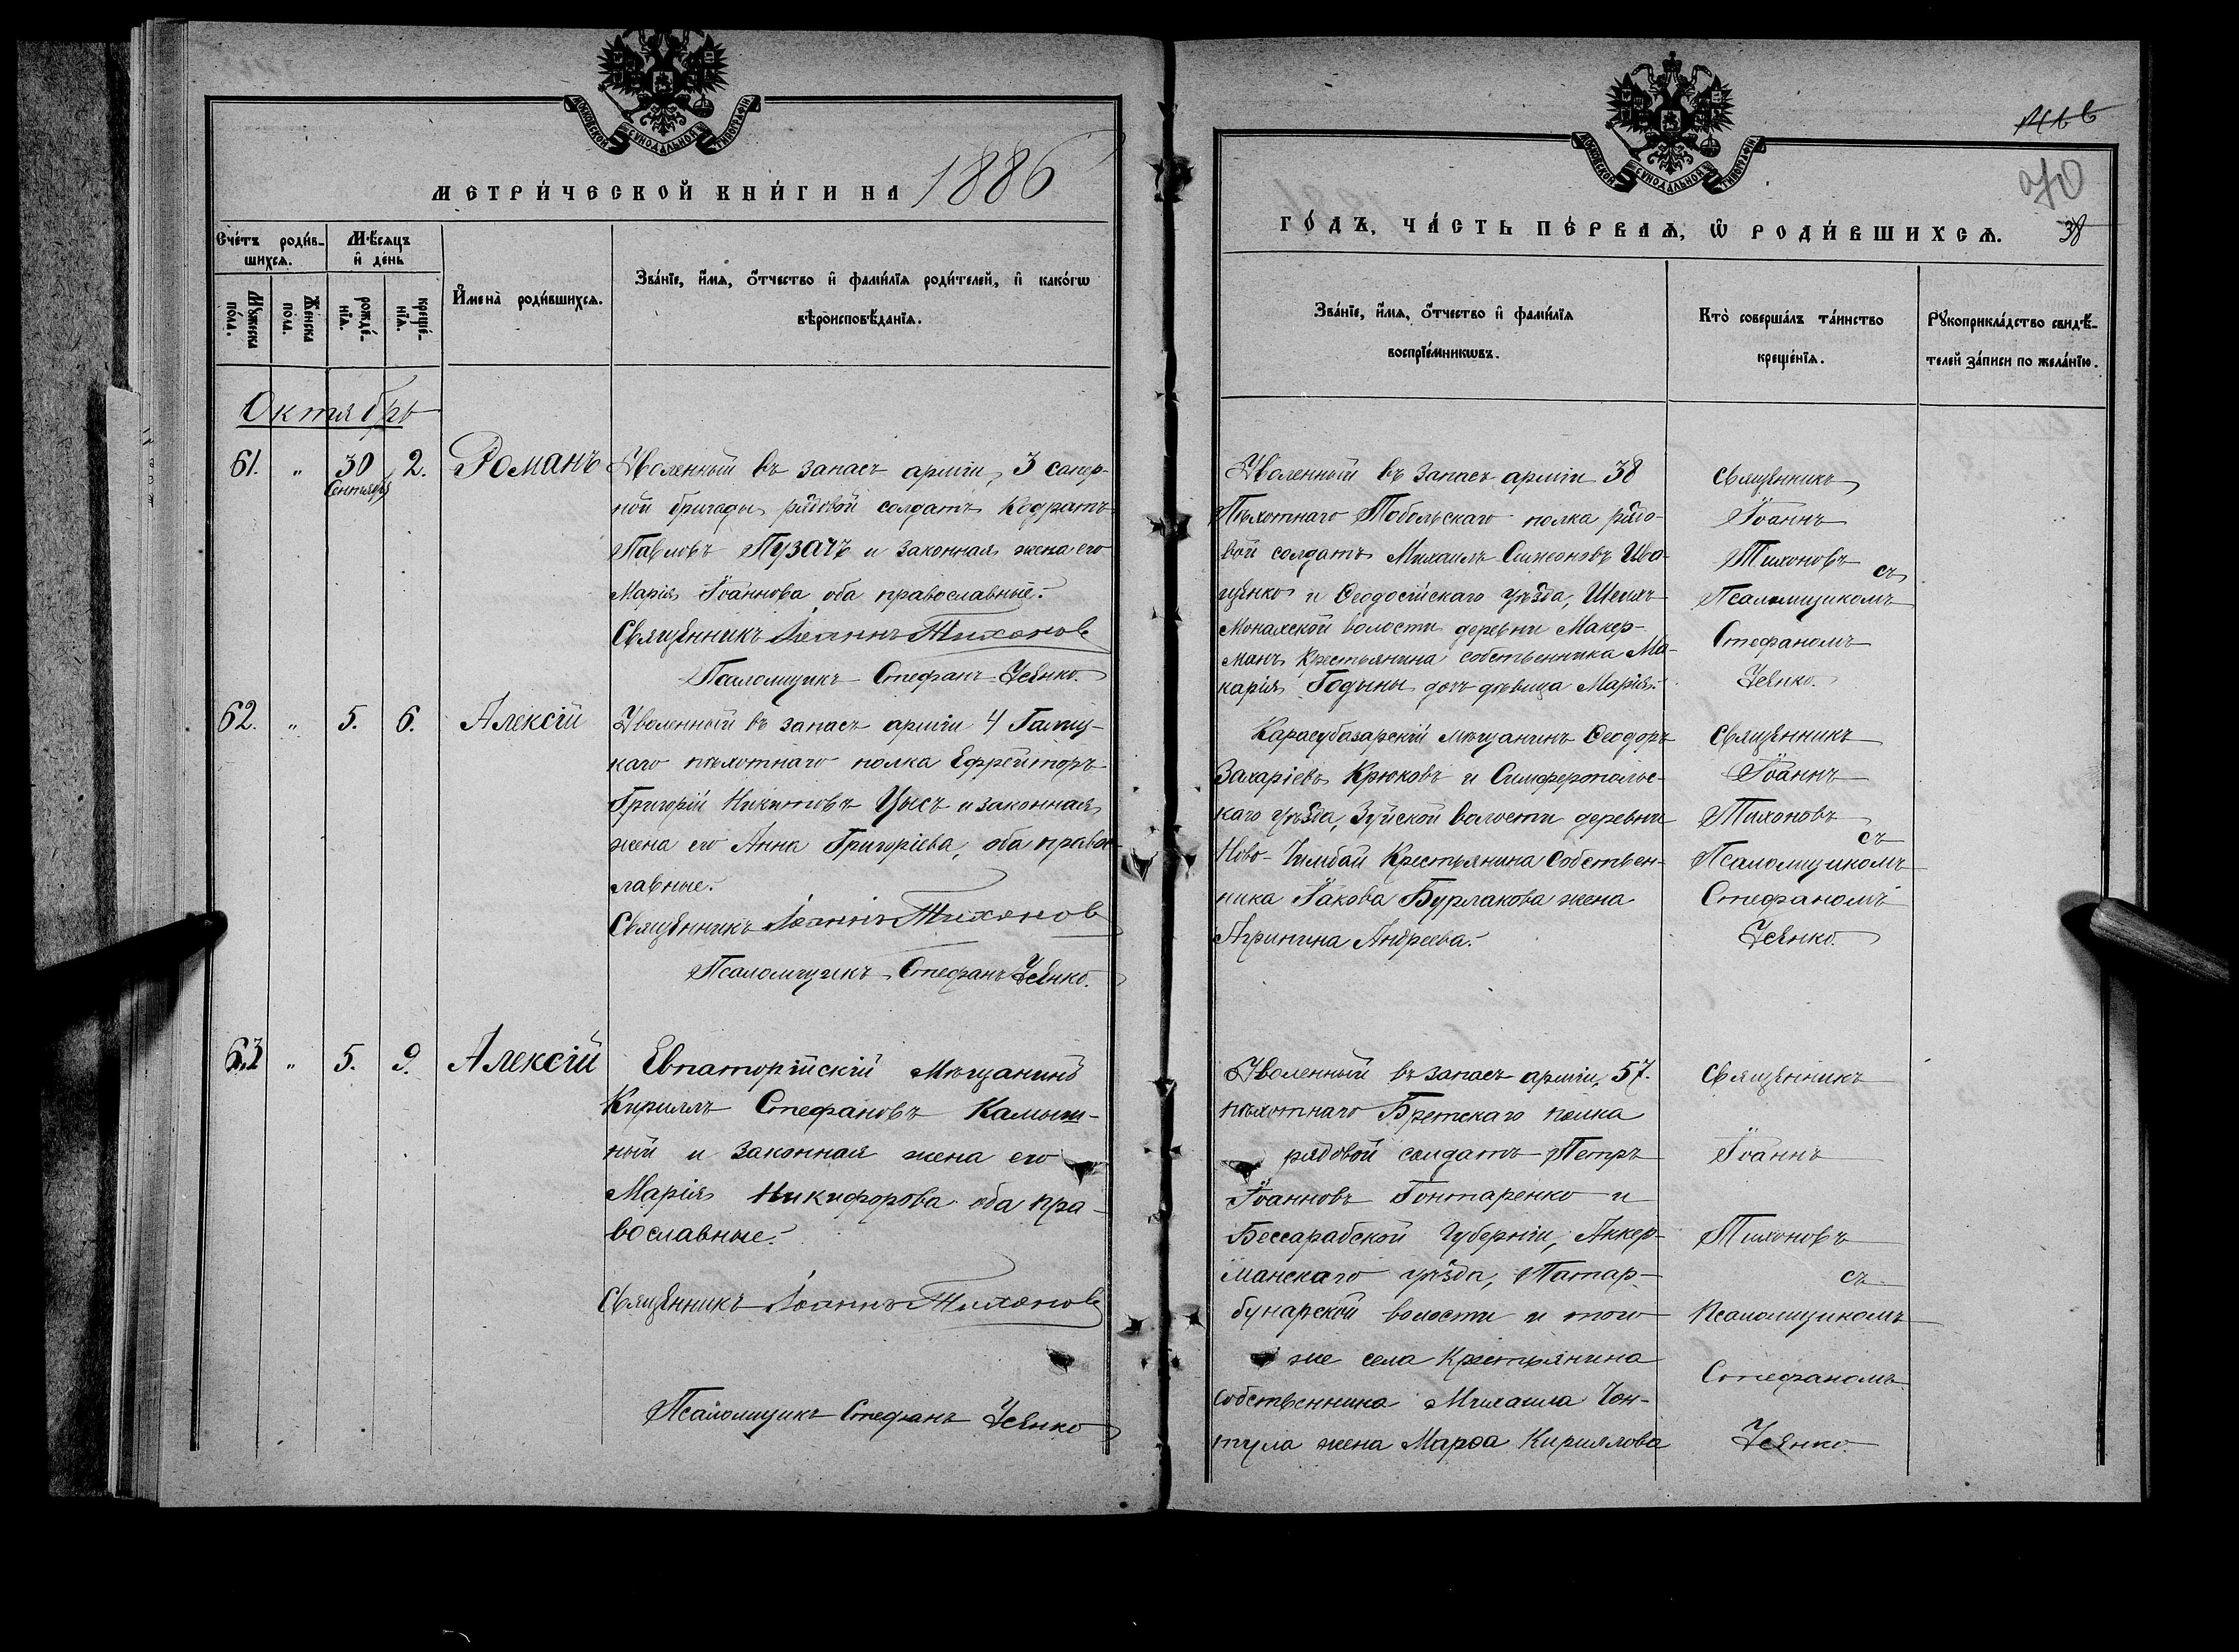 МОСКОВСКОЙ СѴНОДАЛЬНОЙ ТИПОГРАФІИ
МЕТРИ́ЧЕСКОЙ КНИ́ГИ НА 1886
Сче́тъ роди́в-
шихсѧ.
Мѣ́сѧцъ
и҆ де́нь
Мꙋ́жеска
по́ла.
Же́нска
по́ла.
рожде́-
нїѧ.
креще́-
нїѧ.
И҆мена̀ роди́вшихсѧ.
Зва́нїе, и҆́мѧ, ѻ҆́тчество и҆ фами́лїѧ роди́телей, и҆ како́гѡ
вѣ̀роисповѣ́данїѧ.
Октябрь
61. " 30 Сентября 2. Романъ
Уволенный въ запасъ арміи, 3 сапер-
ной бригады рядовой солдатъ Кодратъ
Павловъ Пузачъ и законная жена его
Марія Іоаннова оба православные.
Священникъ Іоаннъ Тихоновъ
Псаломщикъ Стефанъ Усенко.
62. " 5. 6. Алексій
Уволенный въ запасъ арміи 4 Галиц-
каго пѣхотнаго полка Ефрейторъ
Григорій Никитовъ Цысъ и законная
жена его Анна Григоріева, оба правос-
лавные.
Священникъ Іоаннъ Тихоновъ
Псаломщикъ Стефанъ Усенко.
63 " 5. 9. Алексій
Евпаторійскій Мѣщанинъ
Кириллъ Стефановъ Камыш-
ный и законная жена его
Марія Никифорова оба пра-
вославные.
Священникъ Іоаннъ Тихоновъ
Псаломщикъ Стефанъ Усенко
МОСКОВСКОЙ СѴНОДАЛЬНОЙ ТИПОГРАФІИ
70
38
ГО́ДЪ, ЧА́СТЬ ПЕ́РВАѦ, Ѡ҆ РОДИ́ВШИХСѦ.
Зва́нїе, и҆́мѧ, ѻ҆́тчество и҆ фами́лїѧ
воспрїе́мникѡвъ.
Кто̀ соверша́лъ та́инство
креще́нїѧ.
Рꙋкоприкла́дство свидѣ́-
телей за́писи по жела́нїю.
Уволенный въ запасъ арміи 38
Пѣхотнаго Тобольскаго полка рядо-
вой солдатъ Михаилъ Симеоновъ Ива-
щенко и Ѳеодосійскаго уѣзда, Шейх-
Монахской волости деревни Макер-
манъ Крестьянина собственника Ма-
карія Годыны дочь дѣвица Марія.
Священникъ
Іоаннъ
Тихоновъ
съ
Псаломщикомъ
Стефаномъ
Усенко.
Карасубазарскій мѣщанинъ Ѳеодоръ
Захаріевъ Крюковъ и Симферопольс-
каго уѣзда, Зуйской волости деревни
Ново-Чимбай Крестьянина Собствен-
ника Іакова Бурлакова жена
Агрипина Андреева.
Священникъ
Іоаннъ
Тихоновъ
съ
Псаломщикомъ
Стефаномъ
Усенко.
Уволенный въ запасъ арміи, 57.
пѣхотнаго полка
рядовой солдатъ Петръ
Іоанновъ Гонтаренко и
Бессарабской Губерніи, Аккер-
манскаго уѣзда, Татар-
бунарской волости и того
же села Крестьянина
Собственника Михаила Чон-
тула жена Марѳа Кириллова
Священникъ
Іоаннъ
Тихоновъ
съ
Псаломщикомъ
Стефаномъ
Усенко.